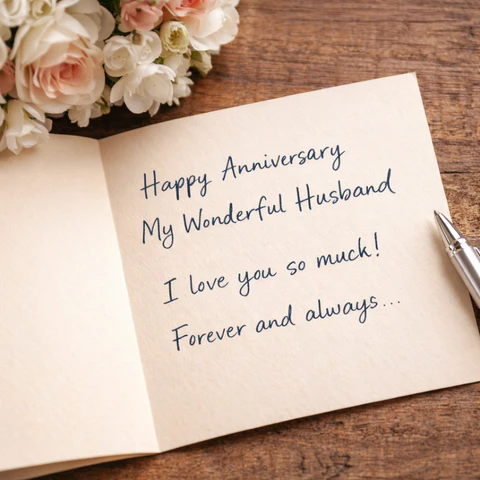 Happy Anniversary
My Wonderful Husband
I love you so muck!
Forever and always...